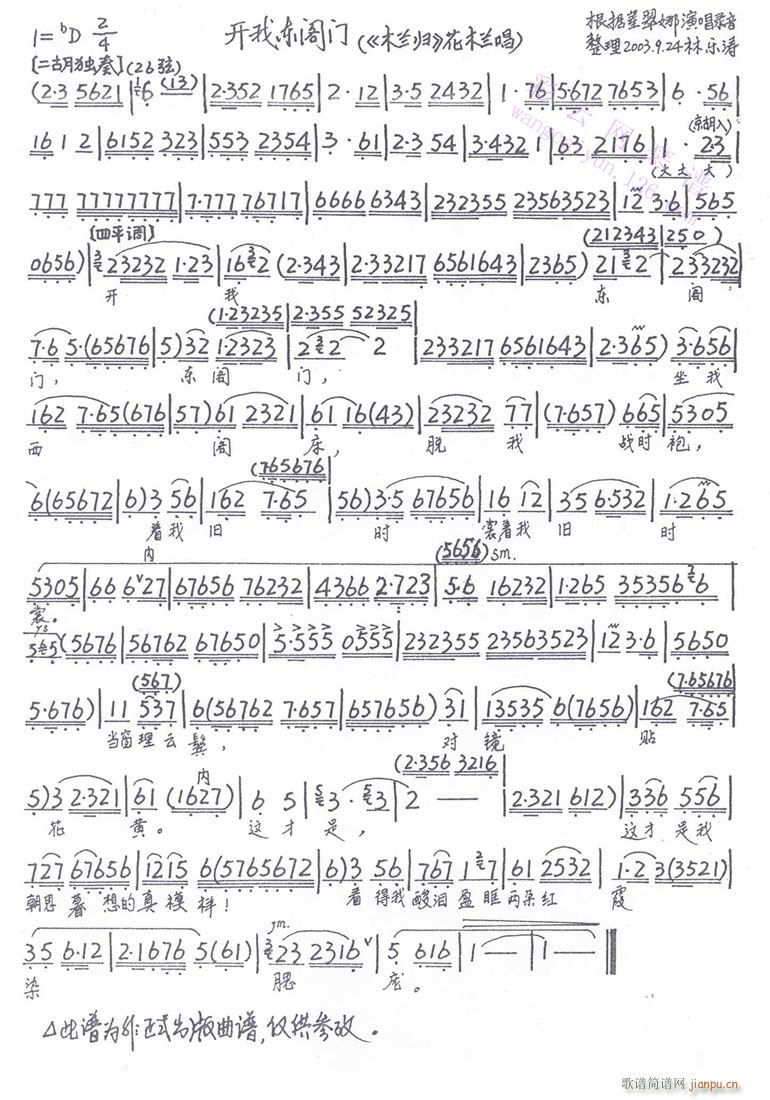 1=ᵇD 2/4 开我东阁门(《木兰归》花木兰唱) 根据董翠娜演唱录音
整理2003.9.24林乐涛
[二胡独奏](26弦)
(2·3 5621 | 6 (13) | 2·352 1765 | 2·12 | 3·5 2432 | 1·76 | 5·672 7653 | 6·56 |
(京胡入)
161 2 | 6152 323 | 553 2354 | 3·61 | 2·3 54 | 3·432 1 | 63 2176 | 1·23 |
(大大 大)
777 77777777 | 7·777 76717 | 6666 6343 | 232355 23563523 | 112 3·6 | 565
[四平调] (212343 | 250)
0656) | 23232 1·23 | 162 (2·343 | 2·33217 6561643 | 2365) 212 | 233232
开 我 东 阁
(1·23235 | 2·355 52325 |
7·6 5·(65676 | 5)32 1·2323 | 2 2 2 | 233217 6561643 | 2·365) 3·656 |
门, 东阁 门, 坐我
162 7·65(676 | 57)61 2321 | 61 16(43) | 23232 77 | (7·657) 665 | 5305
西 阁 床, 脱 我 战时袍,
(765676)
6(65672 | 6)3 56 | 162 7·65 | 56)3·5 67656 | 16 12 | 35 6·532 | 1·265
着我 旧 时 裳着我 旧 时
内 (5656) sm.
5305 | 66 627 | 67656 76232 | 4366 2·723 | 5·6 16232 | 1·265 35356 6
裳。
5 5 (5676 | 56762 67650 | 5·555 0555 | 232355 23563523 | 112 3·6 | 5650
(567) (7·65676
5·676) | 11 537 | 6(56762 7·657 | 657656) 31 | 13535 6(7656) | 162 7·65
当窗理云鬓, 对 镜 贴
内 (2·356 3216
5)3 2·321 | 61 (1627) | 6 5 | 3·3 | 2 — — | 2·321 612) | 336 556
花 黄。 这才是, 这才是我
727 67656 | 1215 6(5765672 | 6)3 56 | 767 1 7 | 61 2532 | 1·2 3(3521)
朝思暮想的真模样! 着得我酸泪盈眶两朵红 霞
35 6·12 | 2·1676 5(61) | 23 2316 | 5 616 | 1 — | 1 —
染 腮 庞。
△此谱为非正式出版曲谱,仅供参改。
歌谱简谱网 jianpu.cn